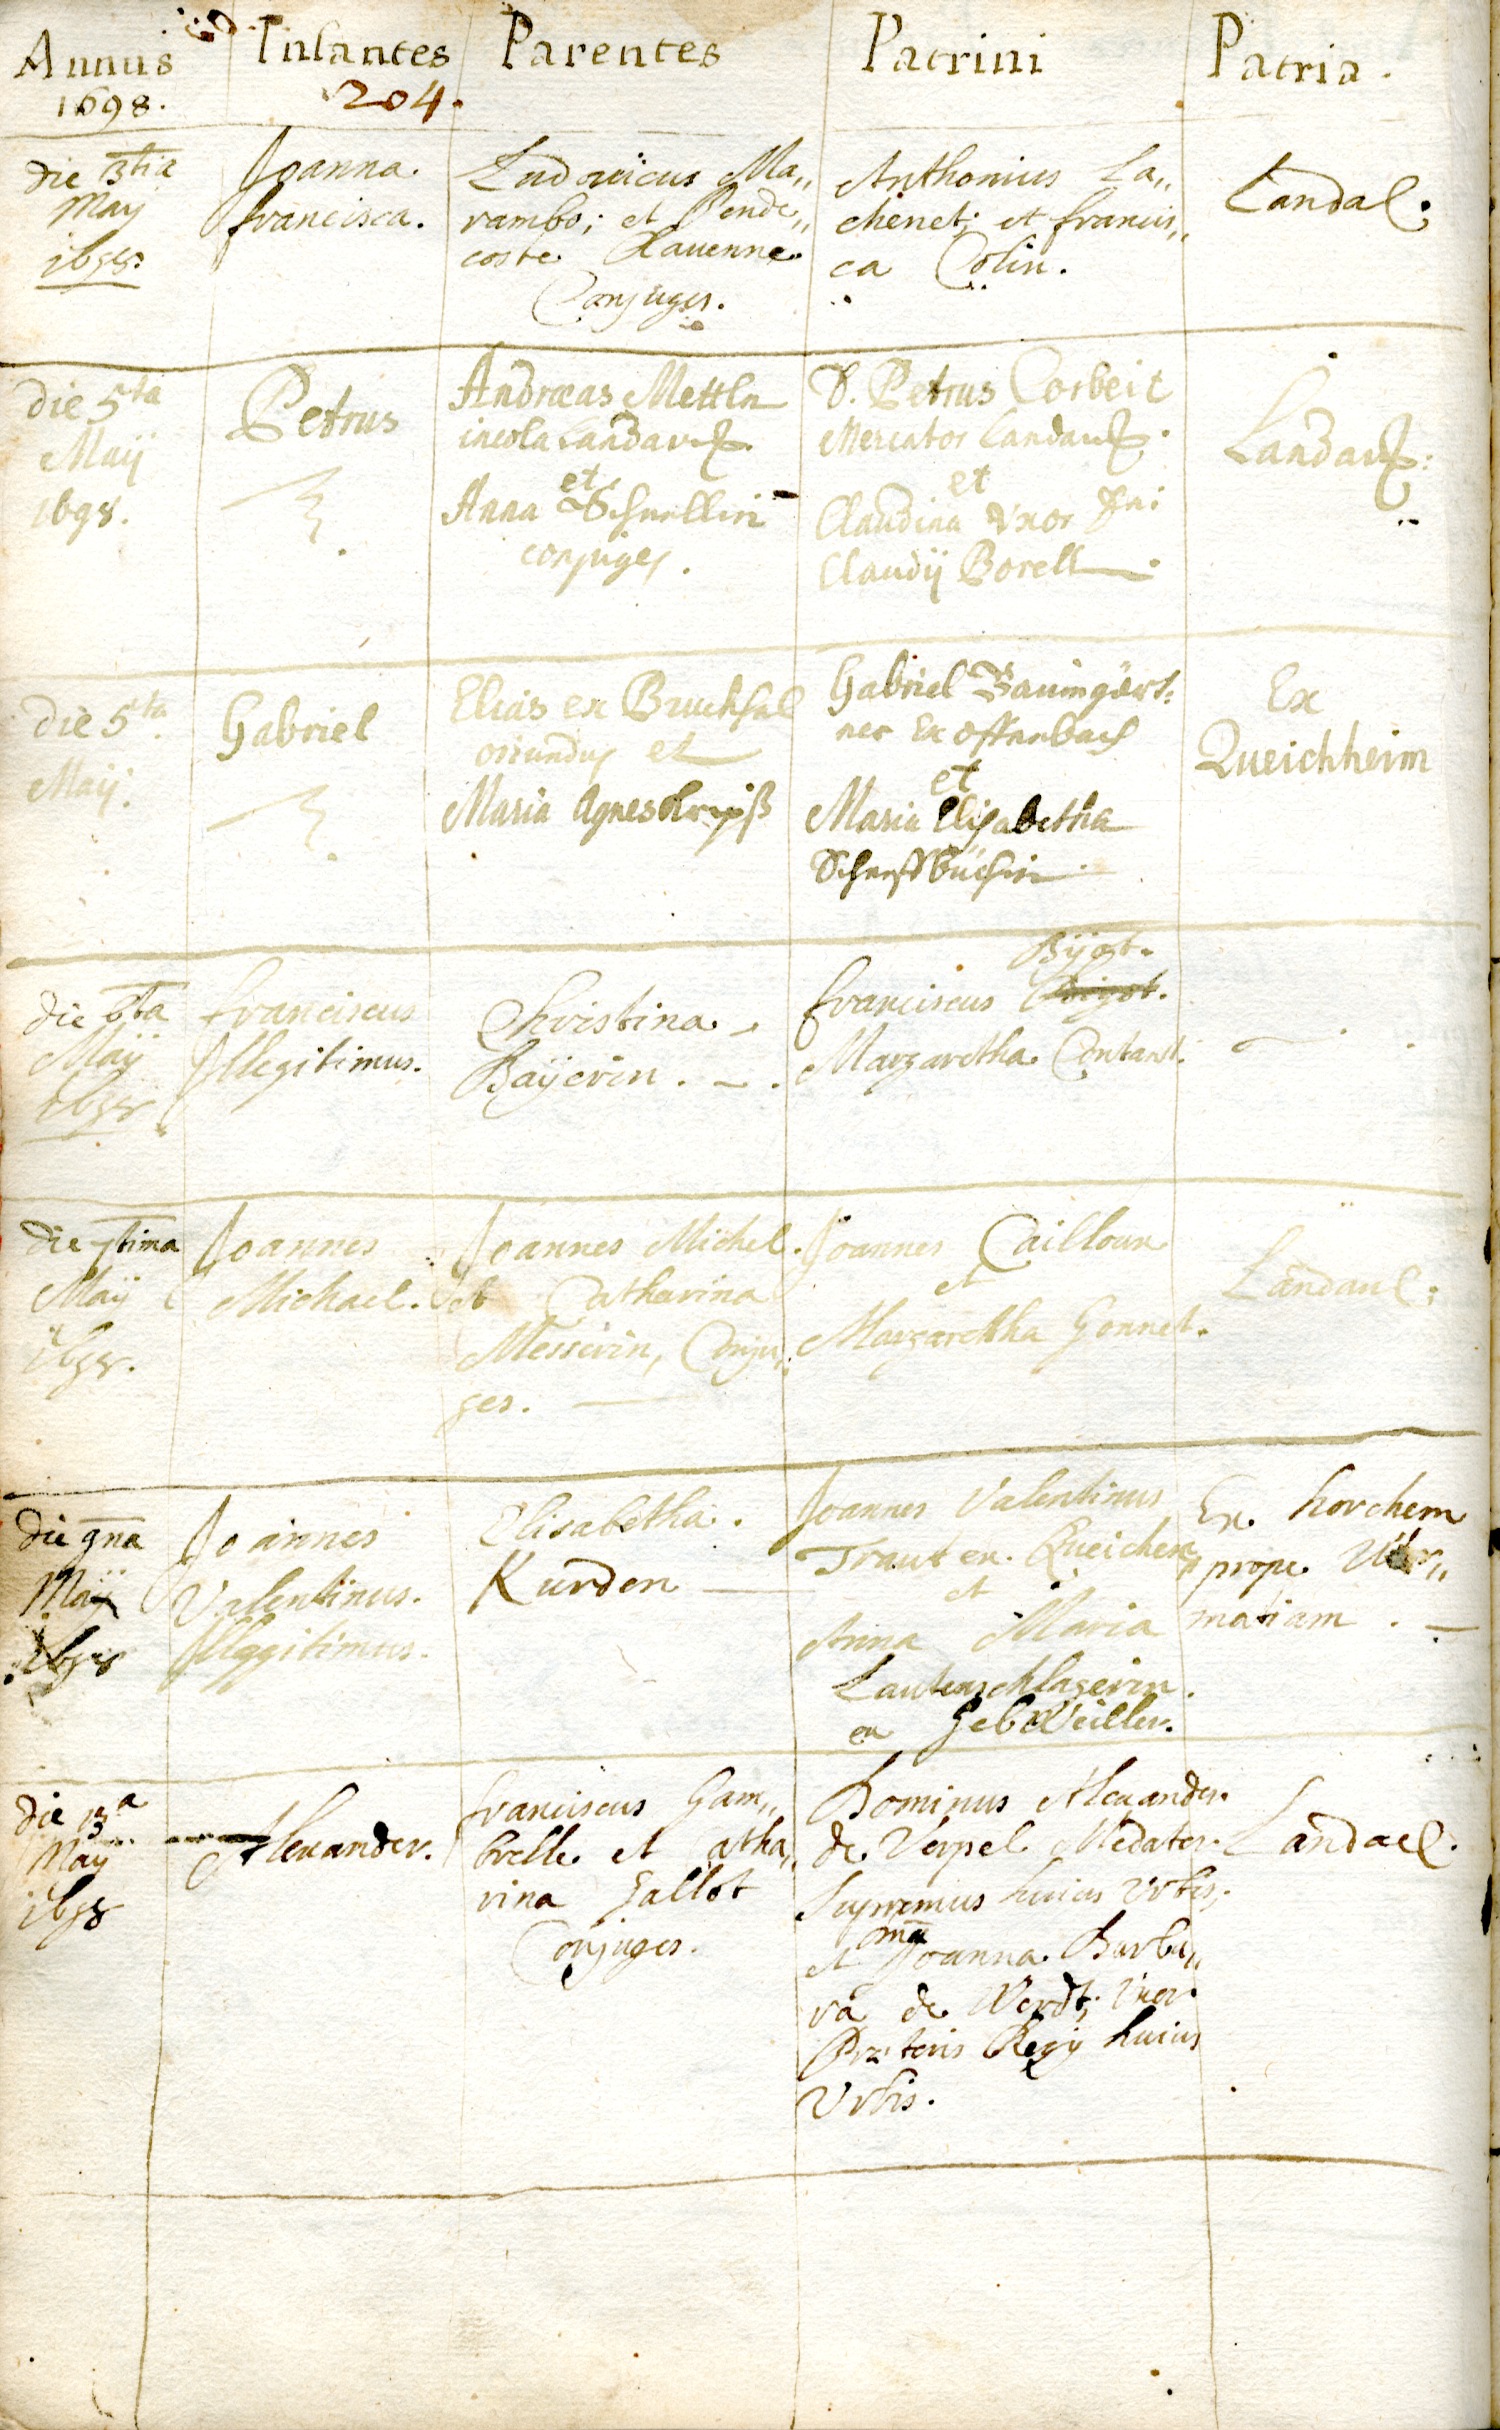 Annus
1698.
Infantes
204.
Parentes
Patrini
Patria.
die 3tia
May
1698.
Joanna
francisca.
Ludovicus Ma,,
rambo; et Pende,,
coste Rauenne
Conjuges.
Anthonius La,,
chenet; et francis,,
ca Colin.
Landa
die 5ta
Maij
1698.
Petrus
Andreas Mettln
incola Landav
et
Anna Schnellin
conjuges.
D. Petrus Corbeit
Mercator Landau
et
Claudina Vxor Dni
Claudij Borell
Landau
die 5ta
Maij.
Gabriel
Elias ex Bruchsal
oriundus et
Maria Agnes
Gabriel Baumgärt:
ner Ex Offenbach
et
Maria Elisabetha
Ex
Queichheim
die 6ta
Maij
1698
franciscus
Illegitimus.
Christina
Baÿerin.
Bijot.
franciscus
Margaretha Contant.
die 7tima
Maij
1698.
Joannes
Michael.
Joannes Michel
et Catharina
Messerin, Conju,,
ges.
Joannes Cailloux
et
Margaretha Gonnet.
Landau
die 9na
Maij
1698
Joannes
Valentinus.
Illegitimus.
Elisabetha
Kurden
Joannes Valentinus
Traut ex Queichem
et
Anna Maria
Lautenschlagerin
ex Gebweiller.
Ex horchem
prope
matiam.
die 13a
Maij
1698
Alexander.
franciscus Gam,,
brelle et Catha,,
rina Gallot
Conjuges.
Dominus Alexander
de Verpel
Supremus huius Urbis,
et Joanna Barba,,
ra de Werdt; Vxor
Prætoris Regij huius
Urbis.
Landa